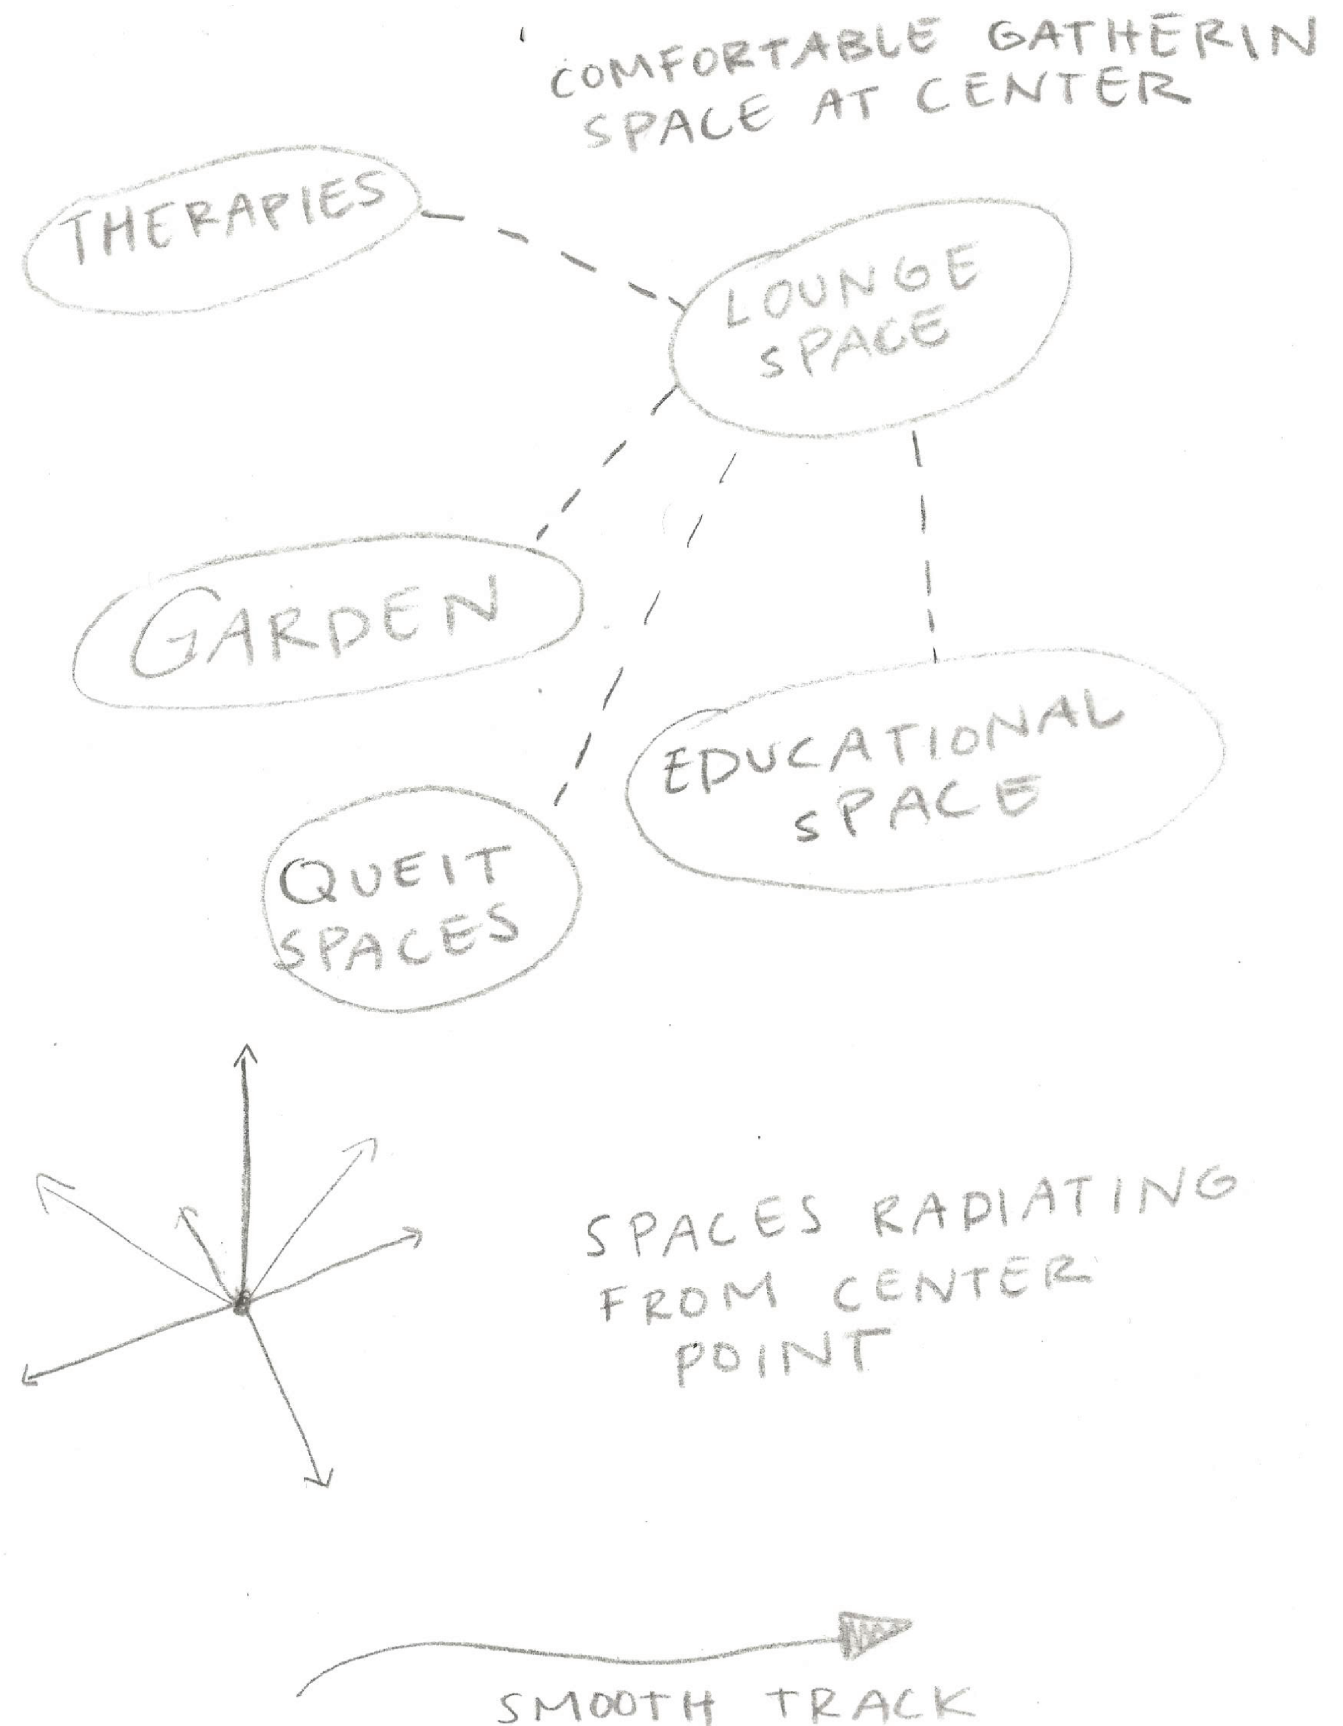 COMFORTABLE GATHERIN
SPACE AT CENTER
THERAPIES
LOUNGE
SPACE
GARDEN
EDUCATIONAL
SPACE
QUEIT
SPACES
SPACES RADIATING
FROM CENTER
POINT
SMOOTH TRACK